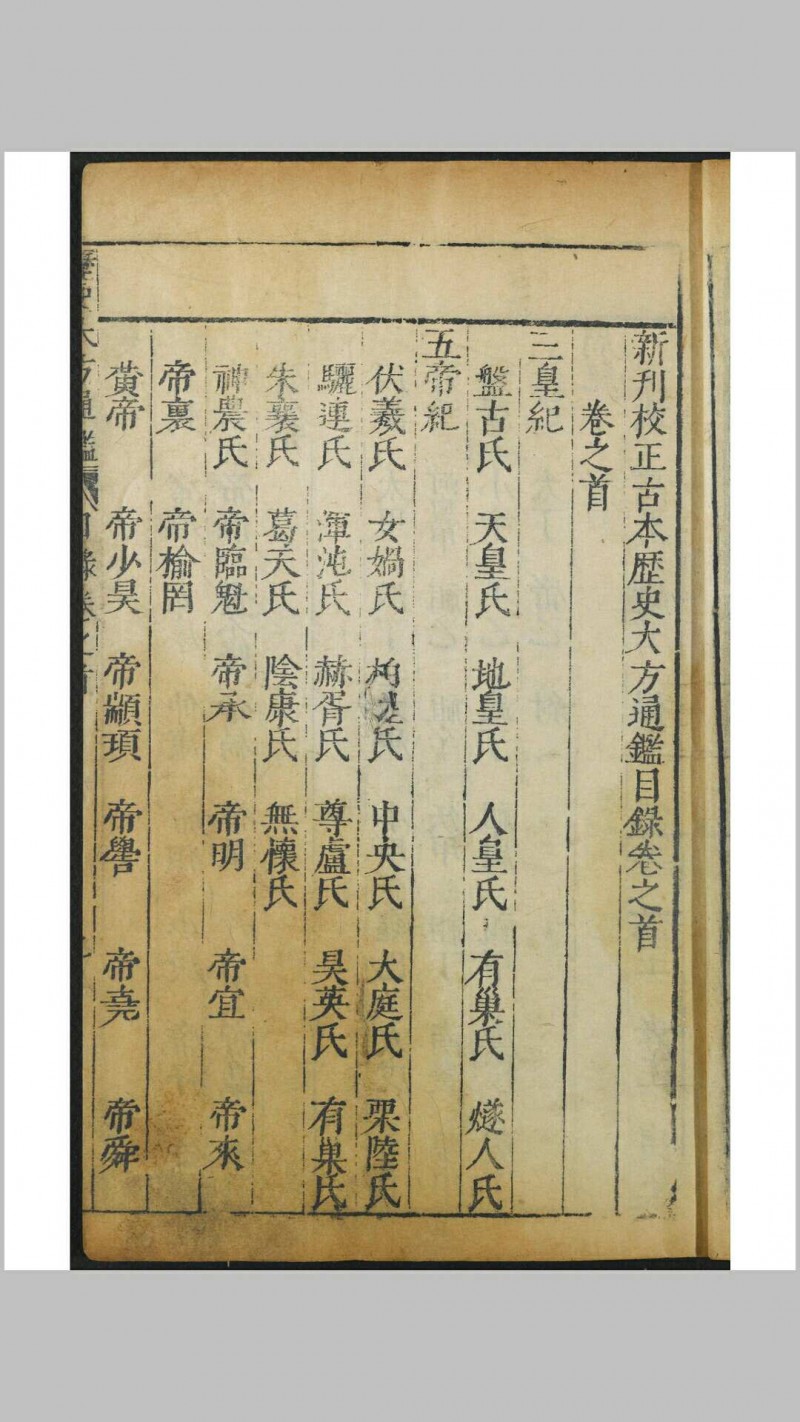 新刊校正古本歷史大方通鑑目錄卷之首
卷之首
三皇紀
盤古氏 天皇氏 地皇氏 人皇氏 有巢氏 燧人氏
五帝紀
伏羲氏 女媧氏 柏皇氏 中央氏 大庭氏 栗陸氏
驪連氏 渾沌氏 赫胥氏 尊盧氏 昊英氏 有巢氏
朱襄氏 葛天氏 陰康氏 無懷氏
神農氏 帝臨魁 帝承 帝明 帝宜 帝來
帝裏 帝榆罔
黃帝 帝少昊 帝顓頊 帝嚳 帝堯 帝舜
歷史大方通鑑 目錄卷之首